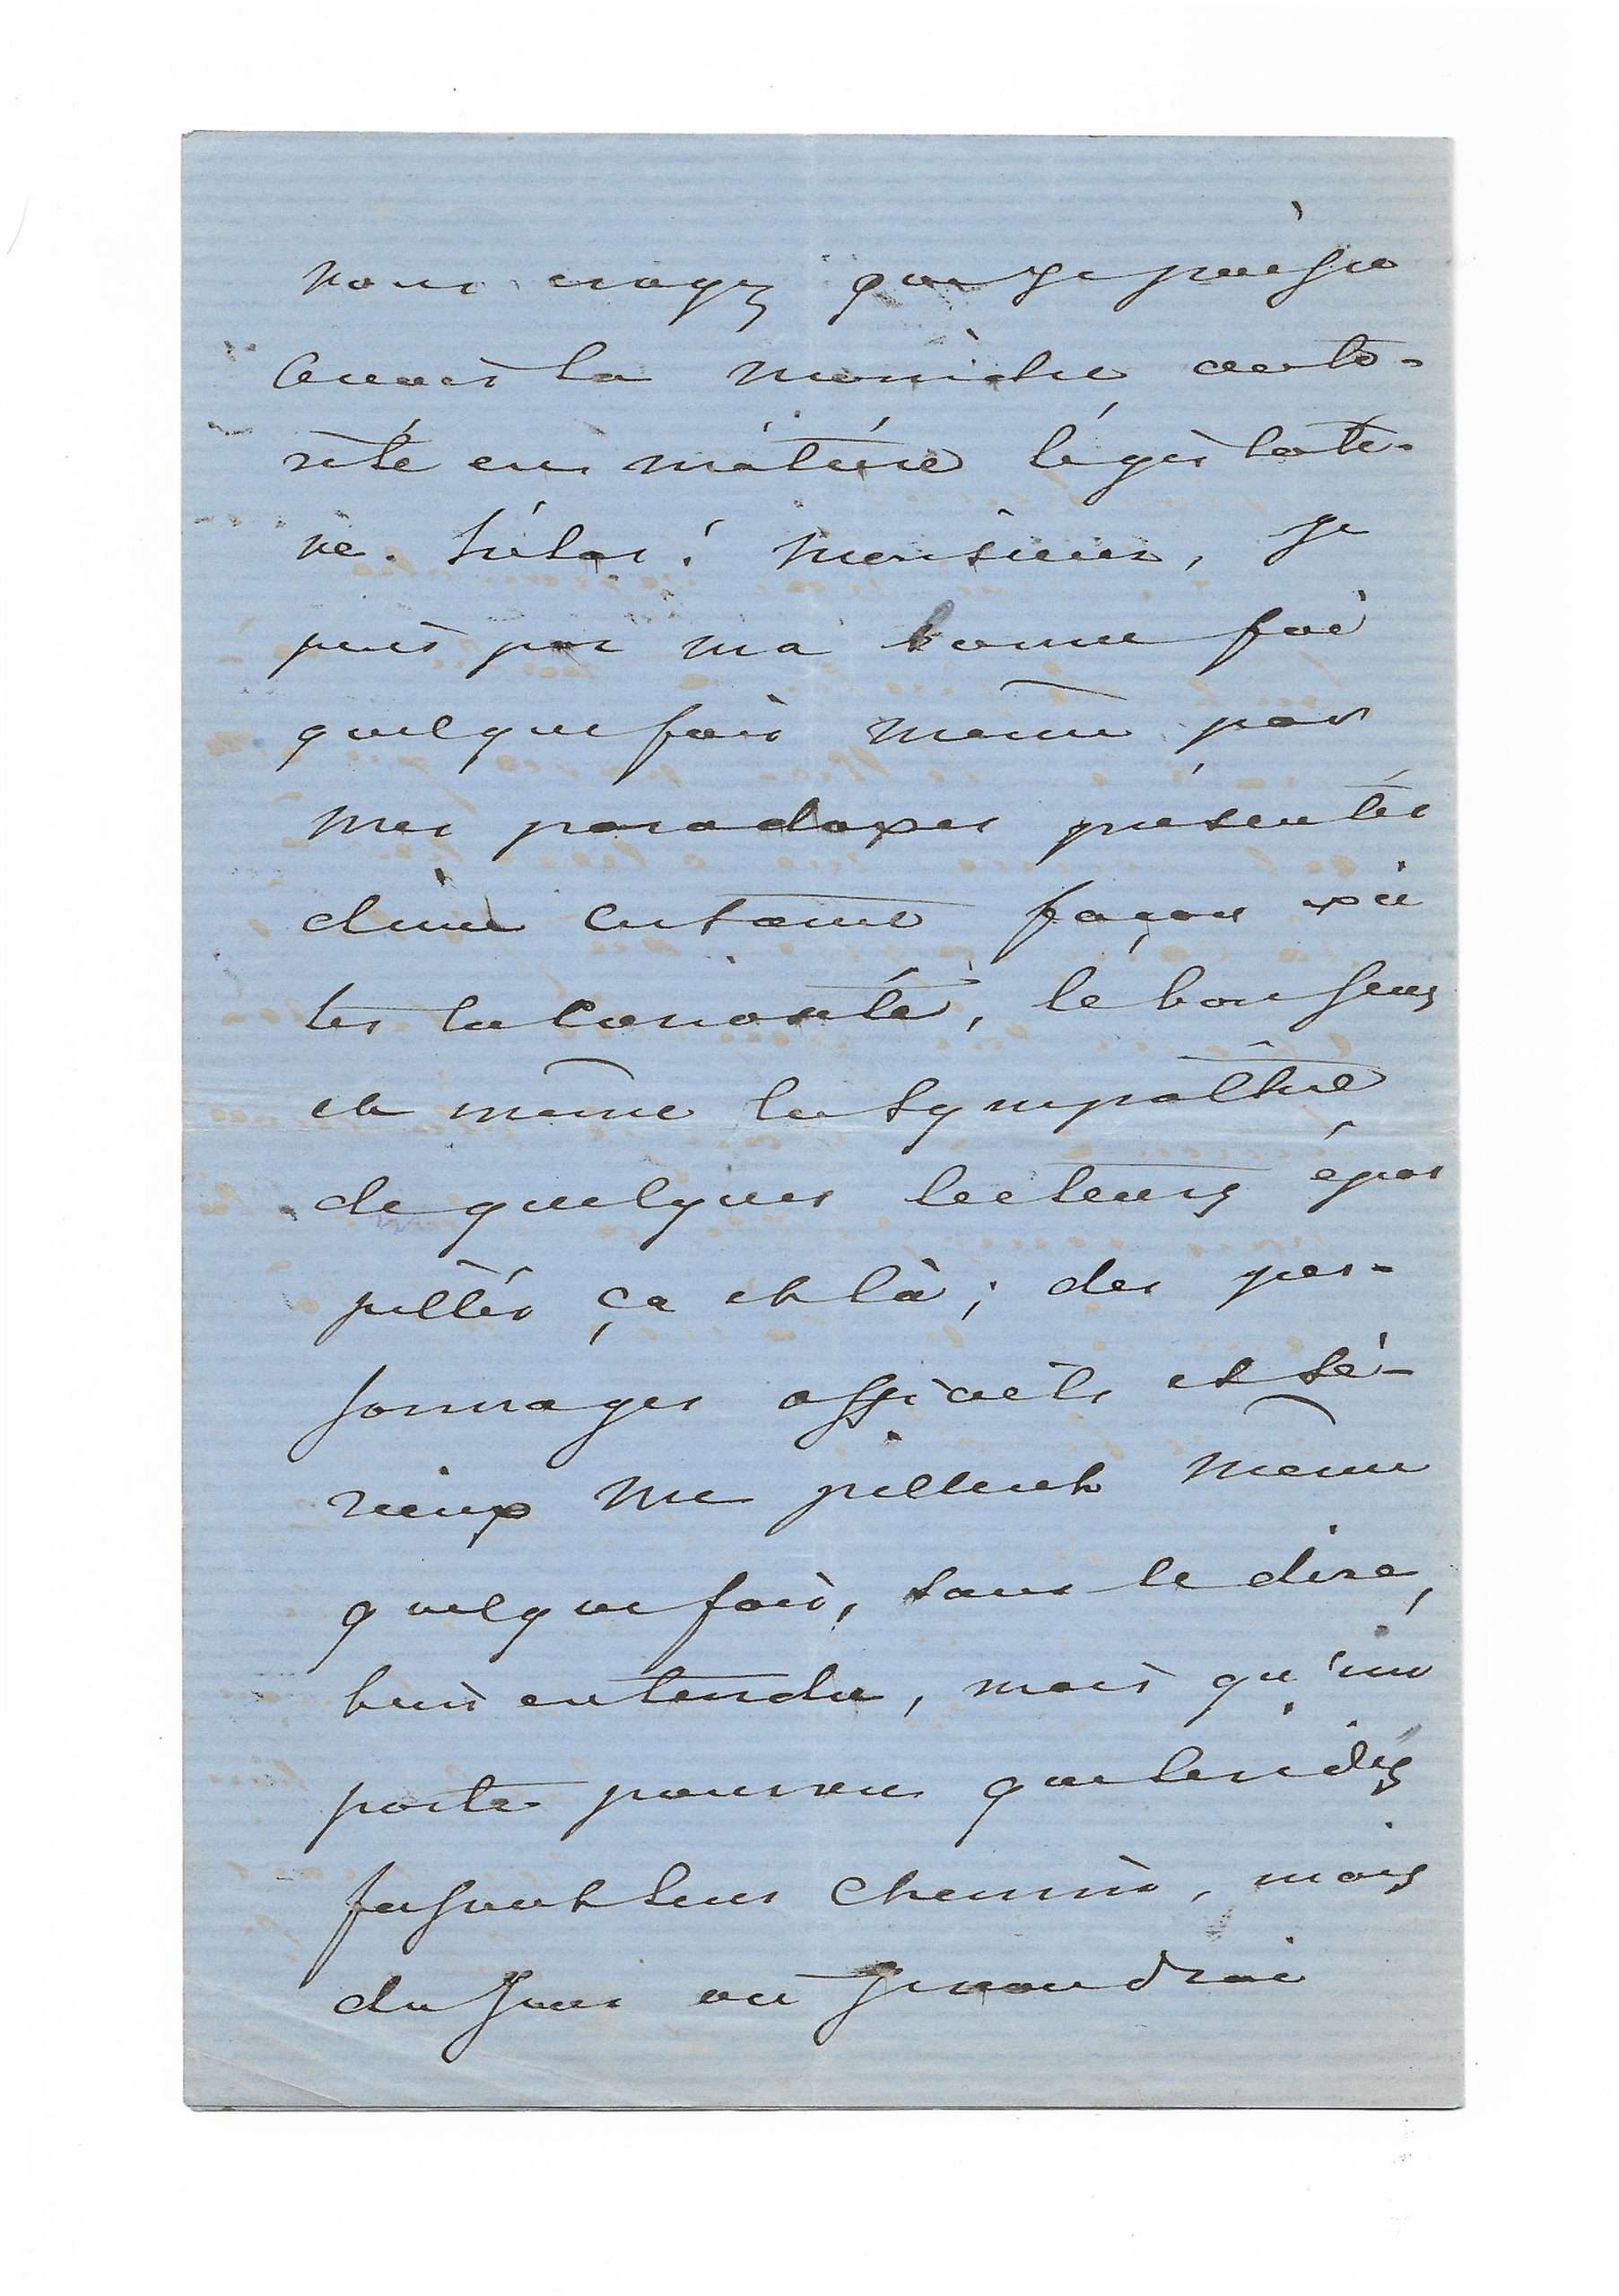 vous croyez que je puisse
avoir la moindre auto-
rité en matière législati-
ve. hélas! Monsieur, je
puis par ma bonne foi
quelquefois même par
mes paradoxes présentés
d'une certaine façon exci
ter la curiosité, le bon sens
et même la sympathie
de quelques lecteurs épar
pillés ça et là; des per-
sonnages officiels et sé-
rieux me pillent même
quelquefois, sans le dire,
bien entendu, mais qu'im
porte pourvu que les idées
fassent leur chemin, mais
du jour où je voudrai